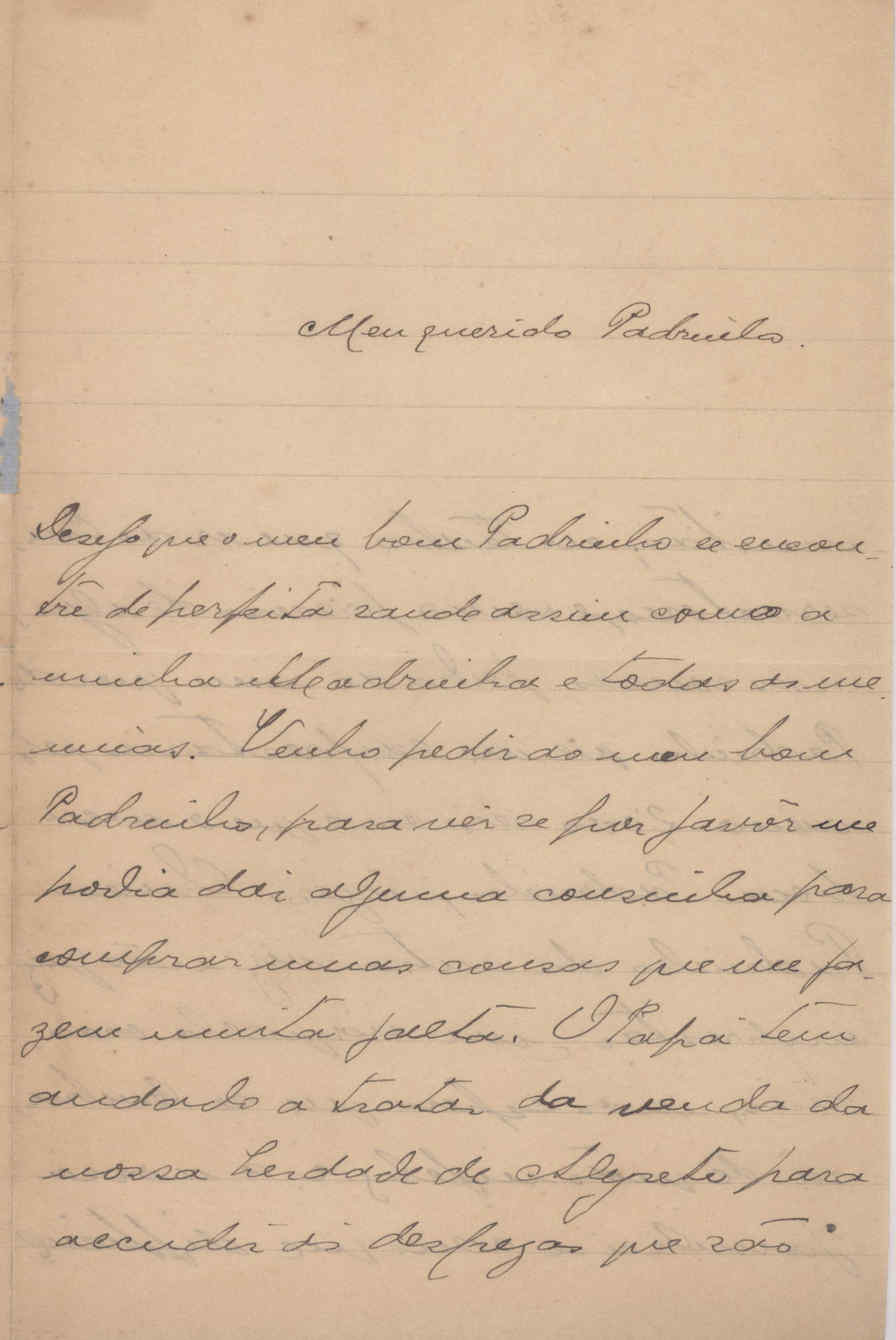 Meu querido Padrinho.
Desejo que o meu bom Padrinho se encon-
tre de perfeita saude assim como a
minha Madrinha e todas as me-
ninas. Venho pedir ao meu bom
Padrinho, para vêr se por favôr me
podia dar alguma cousinha para
comprar umas cousas que me fa-
zem muita falta. O Papá tem
andado a tratar da venda da
nossa herdade de Alegrete para
accudir ás despezas que são